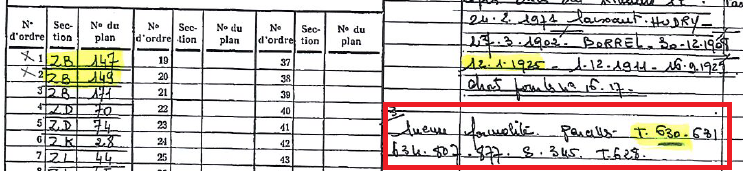 N° d'ordre Sec-tion N° du plan N° d'ordre Sec-tion N° du plan N° d'ordre Sec-tion N° du plan
1 ZB 147 19 37
2 ZB 149 20 38
3 ZB 171 21 39
4 ZD 70 22 40
5 ZD 74 23 41
6 ZK 28 24 42
7 ZL 44 25 43
24.2.1971 HUDRY
17.3.1902 - BORREL - 30.12.1908
12.1.1925 - 1.12.1911 - 16.9.1929
n° 16.17.
Aucune formalité. Parcelles T. 630 - 631
634. 807. 877. S. 345. T. 628.